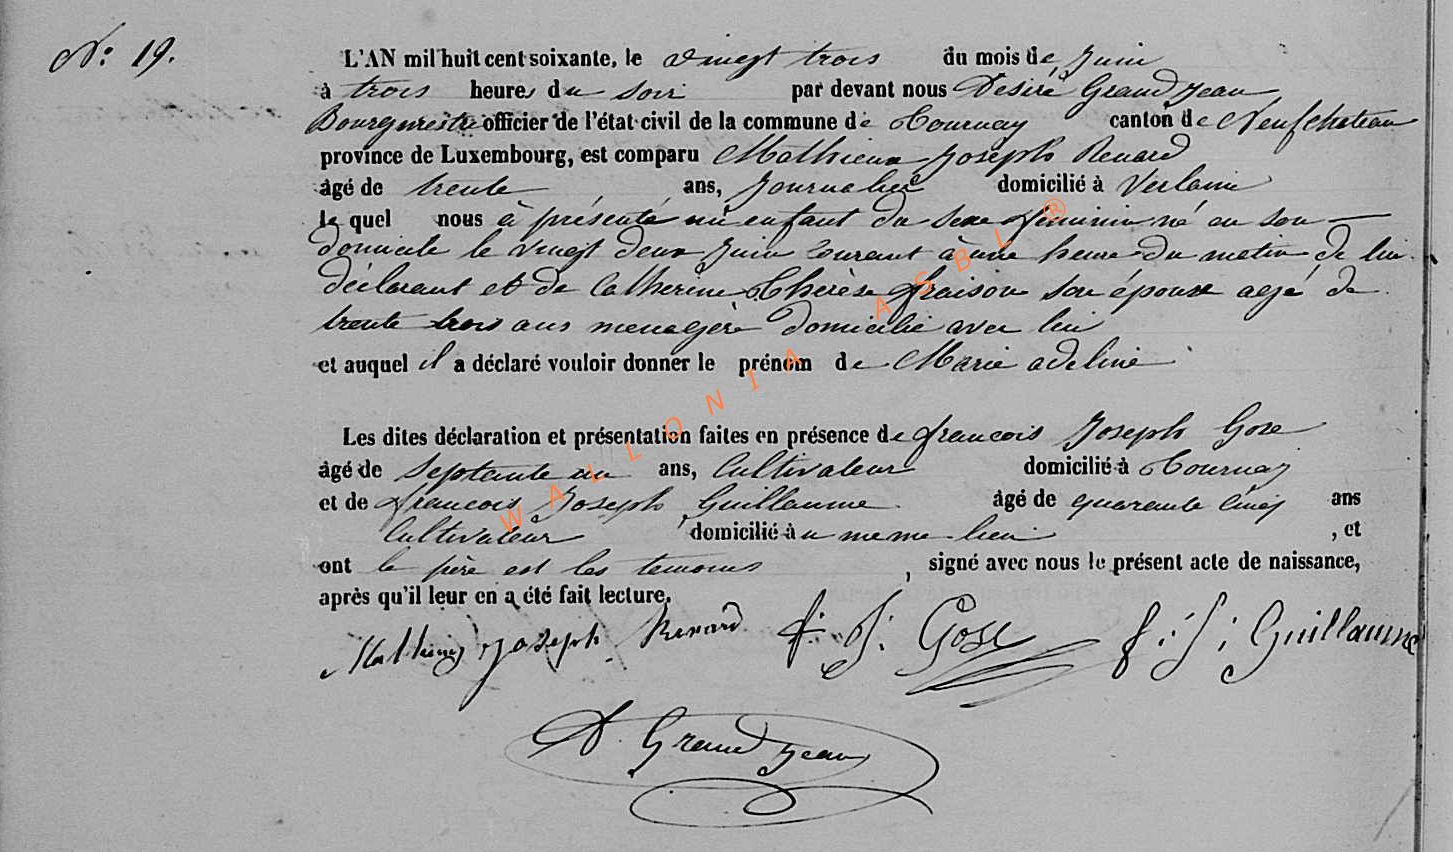 N° 19.
L'AN mil huit cent soixante, le vingt trois du mois de Juin
à trois heures du soir par devant nous Désiré Grandjean
Bourgmestre officier de l'état civil de la commune de Tournay canton de Neufchateau
province de Luxembourg, est comparu Mathieu Joseph Renard
âgé de trente ans, Journalier domicilié à Verlaine
le quel nous à présenté un enfant du sexe féminin né en son
domicile le vingt deux Juin courant à une heure du matin de lui
déclarant et de Catherine Thérèse fraison son épouse agé de
trente trois ans menagère domicilié avec lui
et auquel il a déclaré vouloir donner le prénom de Marie adeline
Les dites déclaration et présentation faites en présence de francois Joseph Gose
âgé de septante un ans, Cultivateur domicilié à Tournay
et de francois Joseph Guillaume âgé de quarante cinq ans
Cultivateur domicilié à u meme lieu , et
ont le père est les temoins , signé avec nous le présent acte de naissance,
après qu'il leur en a été fait lecture.
Mathieu Joseph Renard f. J. Gose f. J. Guillaume
D. Grandjean
WALLONIA ASBL ®